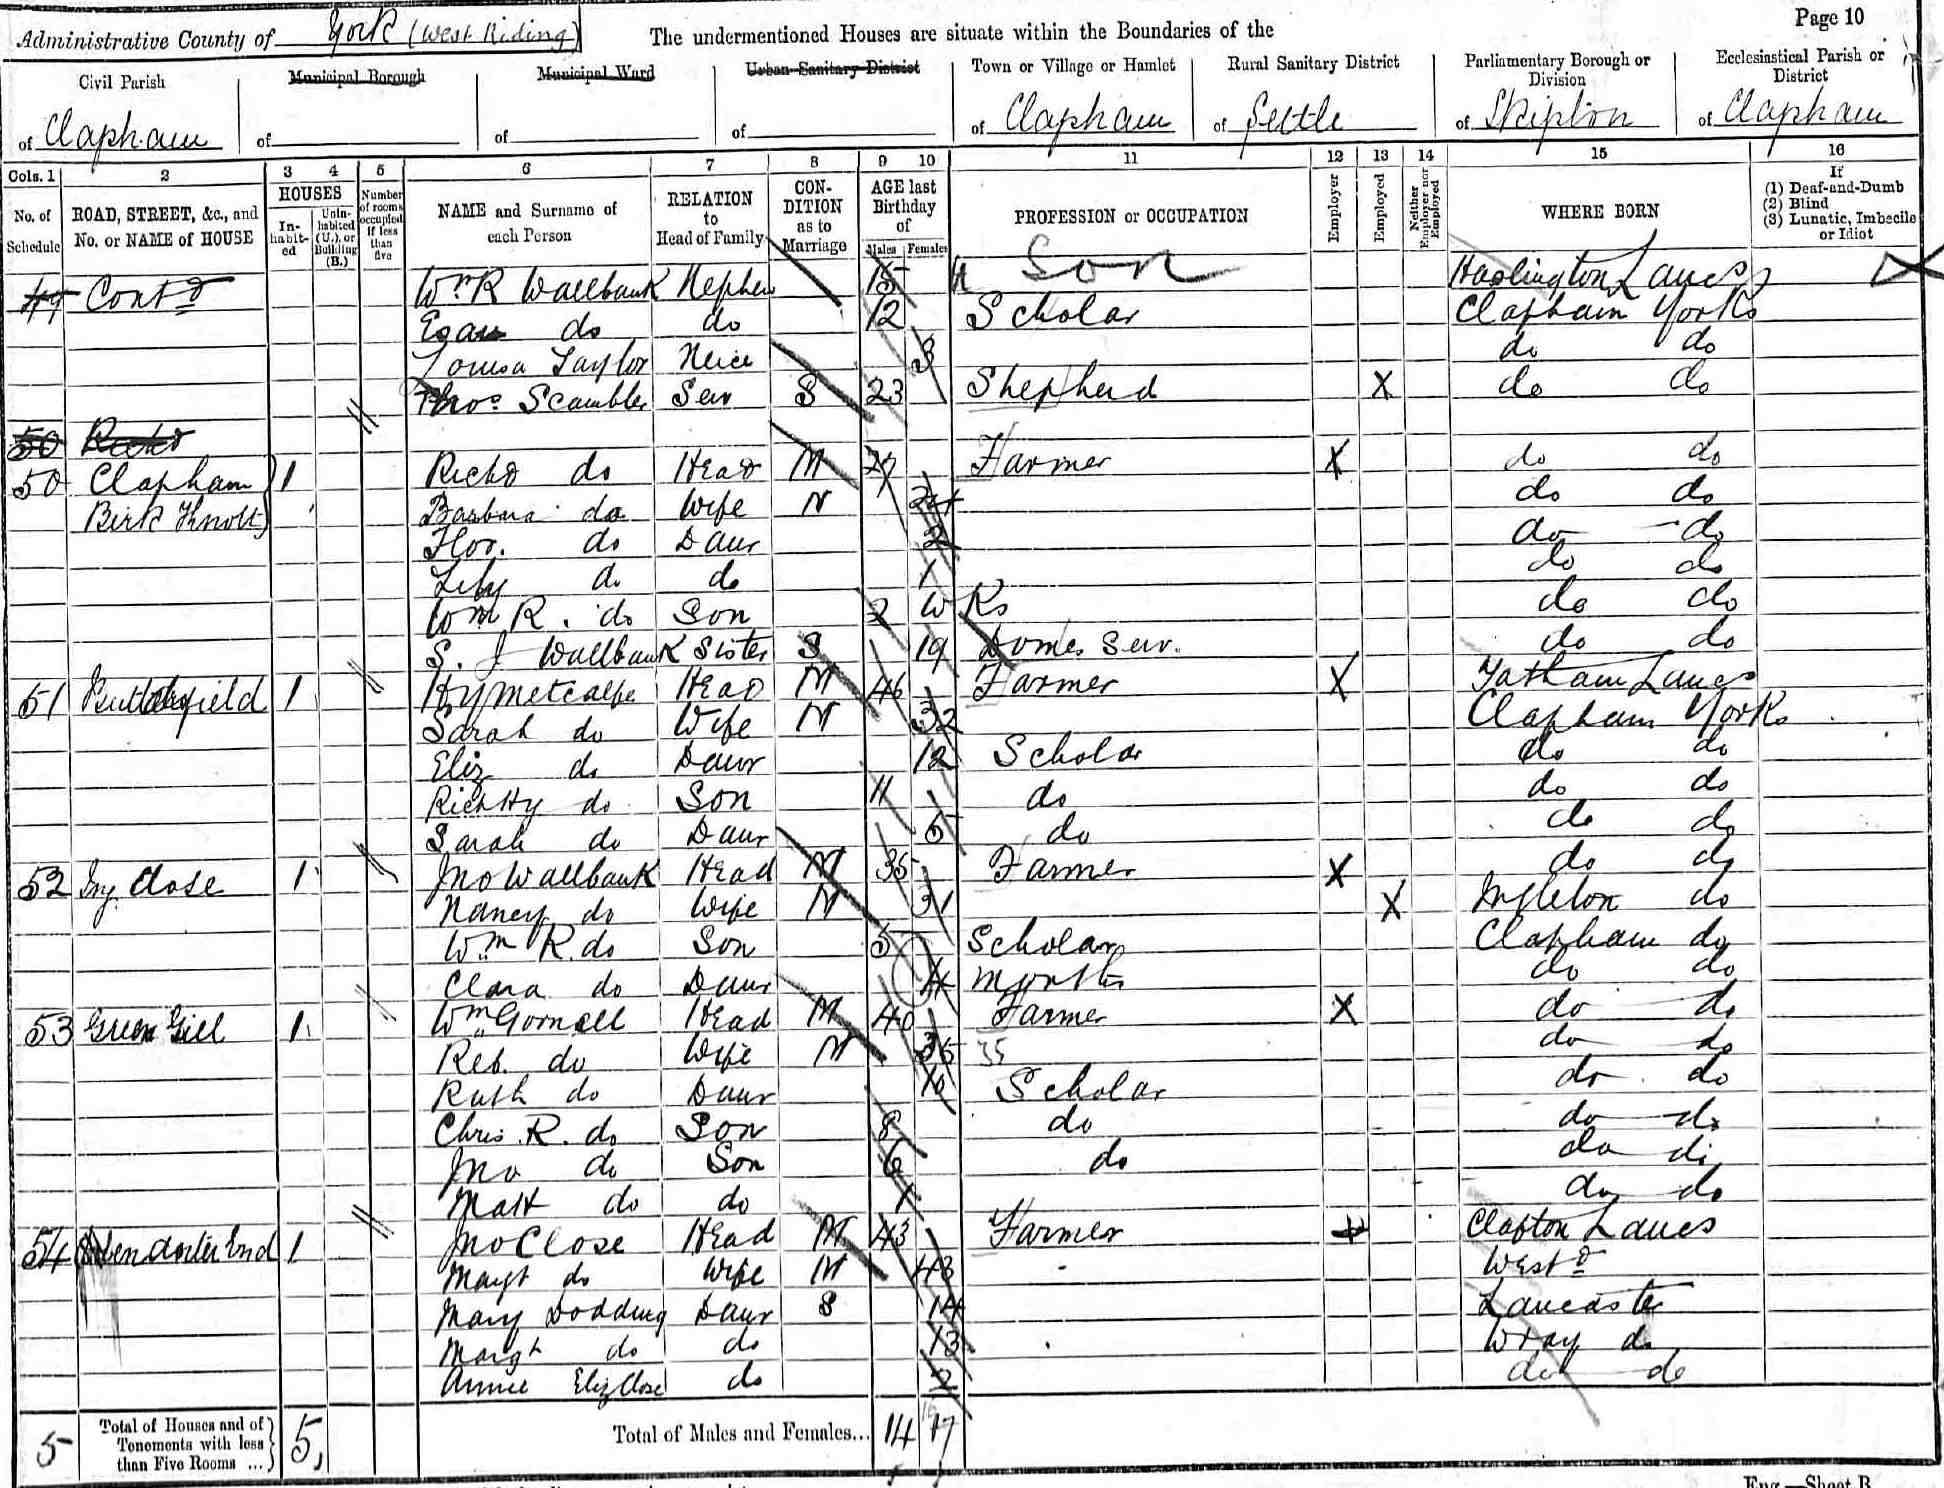 Page 10
Administrative County of York (West Riding) The undermentioned Houses are situate within the Boundaries of the
Civil Parish Municipal Borough Municipal Ward Urban Sanitary District Town or Village or Hamlet Rural Sanitary District Parliamentary Borough or Division Ecclesiastical Parish or District
of Clapham of of of of Clapham of Settle of Skipton of Clapham
Cols. 1 2 3 4 5 6 7 8 9 10 11 12 13 14 15 16
No. of Schedule ROAD, STREET, &c., and No. or NAME of HOUSE HOUSES Inhabited Uninhabited (U.), or Building (B.) Number of rooms occupied if less than five NAME and Surname of each Person RELATION to Head of Family CONDITION as to Marriage AGE last Birthday of Males Females PROFESSION or OCCUPATION Employer Employed Neither Employer nor Employed WHERE BORN If (1) Deaf-and-Dumb (2) Blind (3) Lunatic, Imbecile or Idiot
49 Contd Wm R Wallbank Nephew 15 Son Haslington Lancs
do do 12 Scholar Clapham Yorks
Louisa Taylor Neice 3 do do
Thos Scambler Serv S 23 Shepherd X do do
50 Richd
50 Clapham 1 Richd do Head M 27 Farmer X do do
Birk Knott Barbara do Wife M 24 do do
Flor. do Daur 2 do do
Lily do do 1 do do
Wm R. do Son 2 Wks do do
S. J Wallbank Sister S 19 Domes Serv. do do
51 Butterfield 1 Hy Metcalfe Head M 46 Farmer X Tatham Lancs
Sarah do Wife M 32 Clapham Yorks
Eliz do Daur 12 Scholar do do
Rich Hy do Son 11 do do do
Sarah do Daur 5 do do do
52 Ing Close 1 Jno Wallbank Head M 35 Farmer X do do
Nancy do Wife M 31 X Ingleton do
Wm R. do Son 5 Scholar Clapham do
Clara do Daur 4 Months do do
53 Green Gill 1 Wm Gornall Head M 40 Farmer X do do
Reb. do Wife M 35 35 do do
Ruth do Daur 10 Scholar do do
Chris. R. do Son 8 do do do
Jno do Son 6 do do do
Matt do do 1 do do
54 End 1 Jno Close Head M 43 Farmer Clapton Lancs
Margt do Wife M 43 West d
Mary Dodding Daur S 14 Lancaster
Margt do do 13 Wray do
Annie Eliz Close do 2 do do
5 Total of Houses and of Tenements with less than Five Rooms ... 5 Total of Males and Females... 14 17
Eng.—Sheet B.